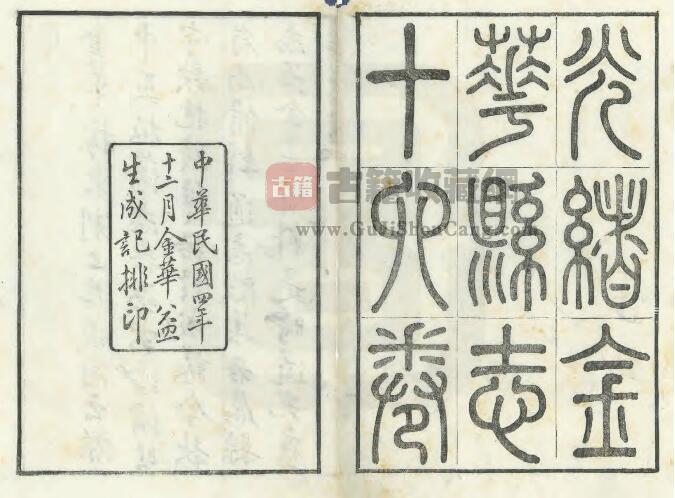 光緒金
華縣志
十六卷
中華民國四年
十二月金華益
生成記排印
古籍
古籍收藏網
www.GuJiShouCang.com